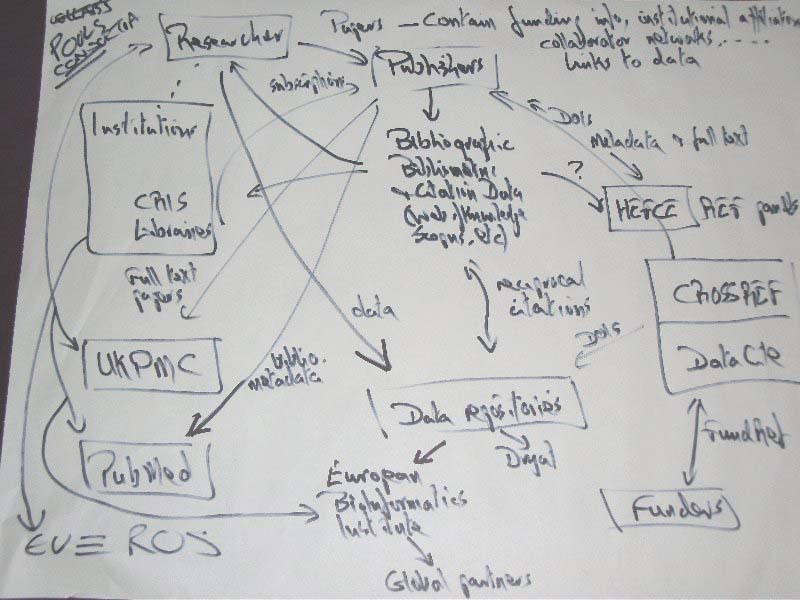 POOLS
CONSORTIA
Researcher
Papers — Contain funding info, institutional affiliation
collaborator networks.....
Links to data
Publishers
subscriptions
Institutions
CRIS
Libraries
Bibliographic
Bibliometric
+ Citation Data
(Web of Knowledge
Scopus, etc)
DOIs
Metadata + full text
?
HEFCE
REF panels
Full text
papers
data
reciprocal
citations
CROSSREF
DataCite
DOIs
UKPMC
biblio.
metadata
Data repositories
Dryad
FundRef
PubMed
European
Bioinformatics
Institute
Funders
Global partners